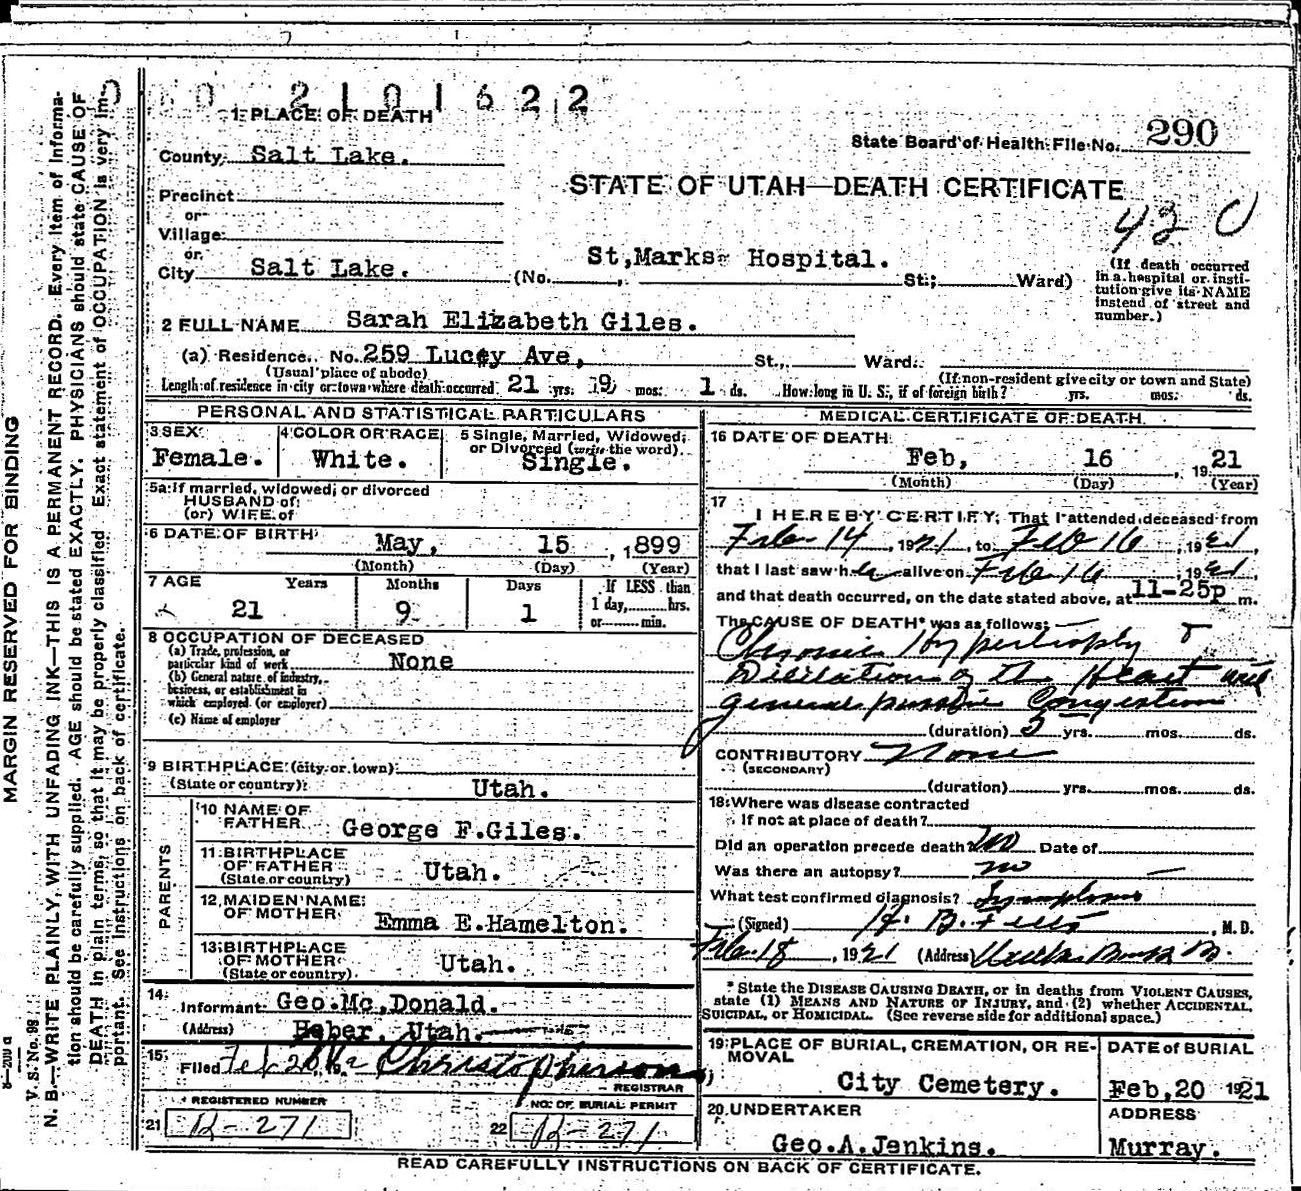 2101622
1 PLACE OF DEATH
State Board of Health File No. 290
County Salt Lake.
STATE OF UTAH—DEATH CERTIFICATE
Precinct
or
Village
or
City Salt Lake. (No. St,Marks Hospital. St.; Ward)
(If death occurred in a hospital or institution give its NAME instead of street and number.)
2 FULL NAME Sarah Elizabeth Giles.
(a) Residence. No. 259 Lucey Ave, St., Ward.
(Usual place of abode) (If non-resident give city or town and State)
Length of residence in city or town where death occurred 21 yrs. 9 mos. 1 ds. How long in U. S., if of foreign birth? yrs. mos. ds.
PERSONAL AND STATISTICAL PARTICULARS
3 SEX Female.
4 COLOR OR RACE White.
5 Single, Married, Widowed, or Divorced (write the word) Single.
5a If married, widowed, or divorced
HUSBAND of
(or) WIFE of
6 DATE OF BIRTH May, 15, 1899
(Month) (Day) (Year)
7 AGE Years Months Days If LESS than
21 9 1 1 day, hrs.
or min.
8 OCCUPATION OF DECEASED
(a) Trade, profession, or
particular kind of work None
(b) General nature of industry,
business, or establishment in
which employed (or employer)
(c) Name of employer
9 BIRTHPLACE (city or town)
(State or country) Utah.
PARENTS
10 NAME OF
FATHER George F.Giles.
11 BIRTHPLACE
OF FATHER Utah.
(State or country)
12 MAIDEN NAME
OF MOTHER Emma E.Hamelton.
13 BIRTHPLACE
OF MOTHER Utah.
(State or country)
14 Informant Geo.Mc,Donald.
(Address) Heber, Utah.
15 Filed Feb 28 Christopherson
REGISTRAR
REGISTERED NUMBER NO. OF BURIAL PERMIT
21 R-271 22 R-271
MEDICAL CERTIFICATE OF DEATH
16 DATE OF DEATH
Feb, 16, 1921
(Month) (Day) (Year)
17
I HEREBY CERTIFY, That I attended deceased from
Feb 14, 1921, to Feb 16, 1921,
that I last saw her alive on Feb 16, 1921,
and that death occurred, on the date stated above, at 11-25p m.
The CAUSE OF DEATH* was as follows:
Chronic Hypertrophy &
Dilitation of the Heart and
general passive Congestion
(duration) 5 yrs. mos. ds.
CONTRIBUTORY None
(SECONDARY)
(duration) yrs. mos. ds.
18 Where was disease contracted
If not at place of death?
Did an operation precede death? No Date of
Was there an autopsy? no
What test confirmed diagnosis? Symptoms
(Signed) , M.D.
Feb 18, 1921 (Address)
* State the DISEASE CAUSING DEATH, or in deaths from VIOLENT CAUSES,
state (1) MEANS AND NATURE OF INJURY, and (2) whether ACCIDENTAL,
SUICIDAL, or HOMICIDAL. (See reverse side for additional space.)
19 PLACE OF BURIAL, CREMATION, OR REMOVAL DATE of BURIAL
City Cemetery. Feb,20 1921
20 UNDERTAKER ADDRESS
Geo.A.Jenkins. Murray.
READ CAREFULLY INSTRUCTIONS ON BACK OF CERTIFICATE.
MARGIN RESERVED FOR BINDING
V. S. No. 98
N. B.—WRITE PLAINLY, WITH UNFADING INK—THIS IS A PERMANENT RECORD. Every item of information
should be carefully supplied. AGE should be stated EXACTLY. PHYSICIANS should state CAUSE OF
DEATH in plain terms, so that it may be properly classified. Exact statement of OCCUPATION is very important.
See instructions on back of certificate.